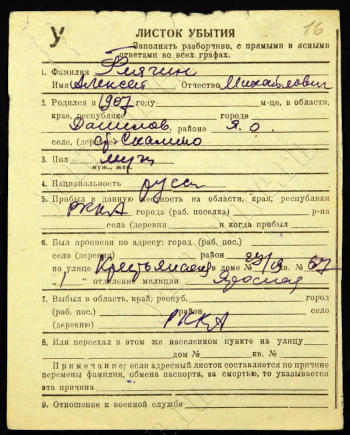 16
У ЛИСТОК УБЫТИЯ
Заполнять разборчиво, с прямыми и ясными
ответами во всех графах.
1. Фамилия
Имя Алексей Отчество Михайлович
2. Родился в 1907 году м-це, в области,
крае, республике городе
Данилов. районе Я. О.
селе, (дер)
3. Пол муж
муж., жен.
4. Национальность русск
5. Прибыл в данную местность из области, края, республики
РККА города (раб. поселка) р-на
села (деревни и когда прибыл
6. Был прописан по адресу: город (раб. пос.)
село (деревни) район
по улице в доме № 19 кв. № 67
" 1 " отделение милиции
7. Выбыл в область, край, респуб. город
(раб. пос.) район село
(деревню) РККА
8. Или переехал в этом же населенном пункте на улицу
дом № кв. №
Примечание: если адресный листок составляется по причине
перемены фамилии, обмена паспорта, за смертью, то указывается
эта причина
9. Отношение к военной службе